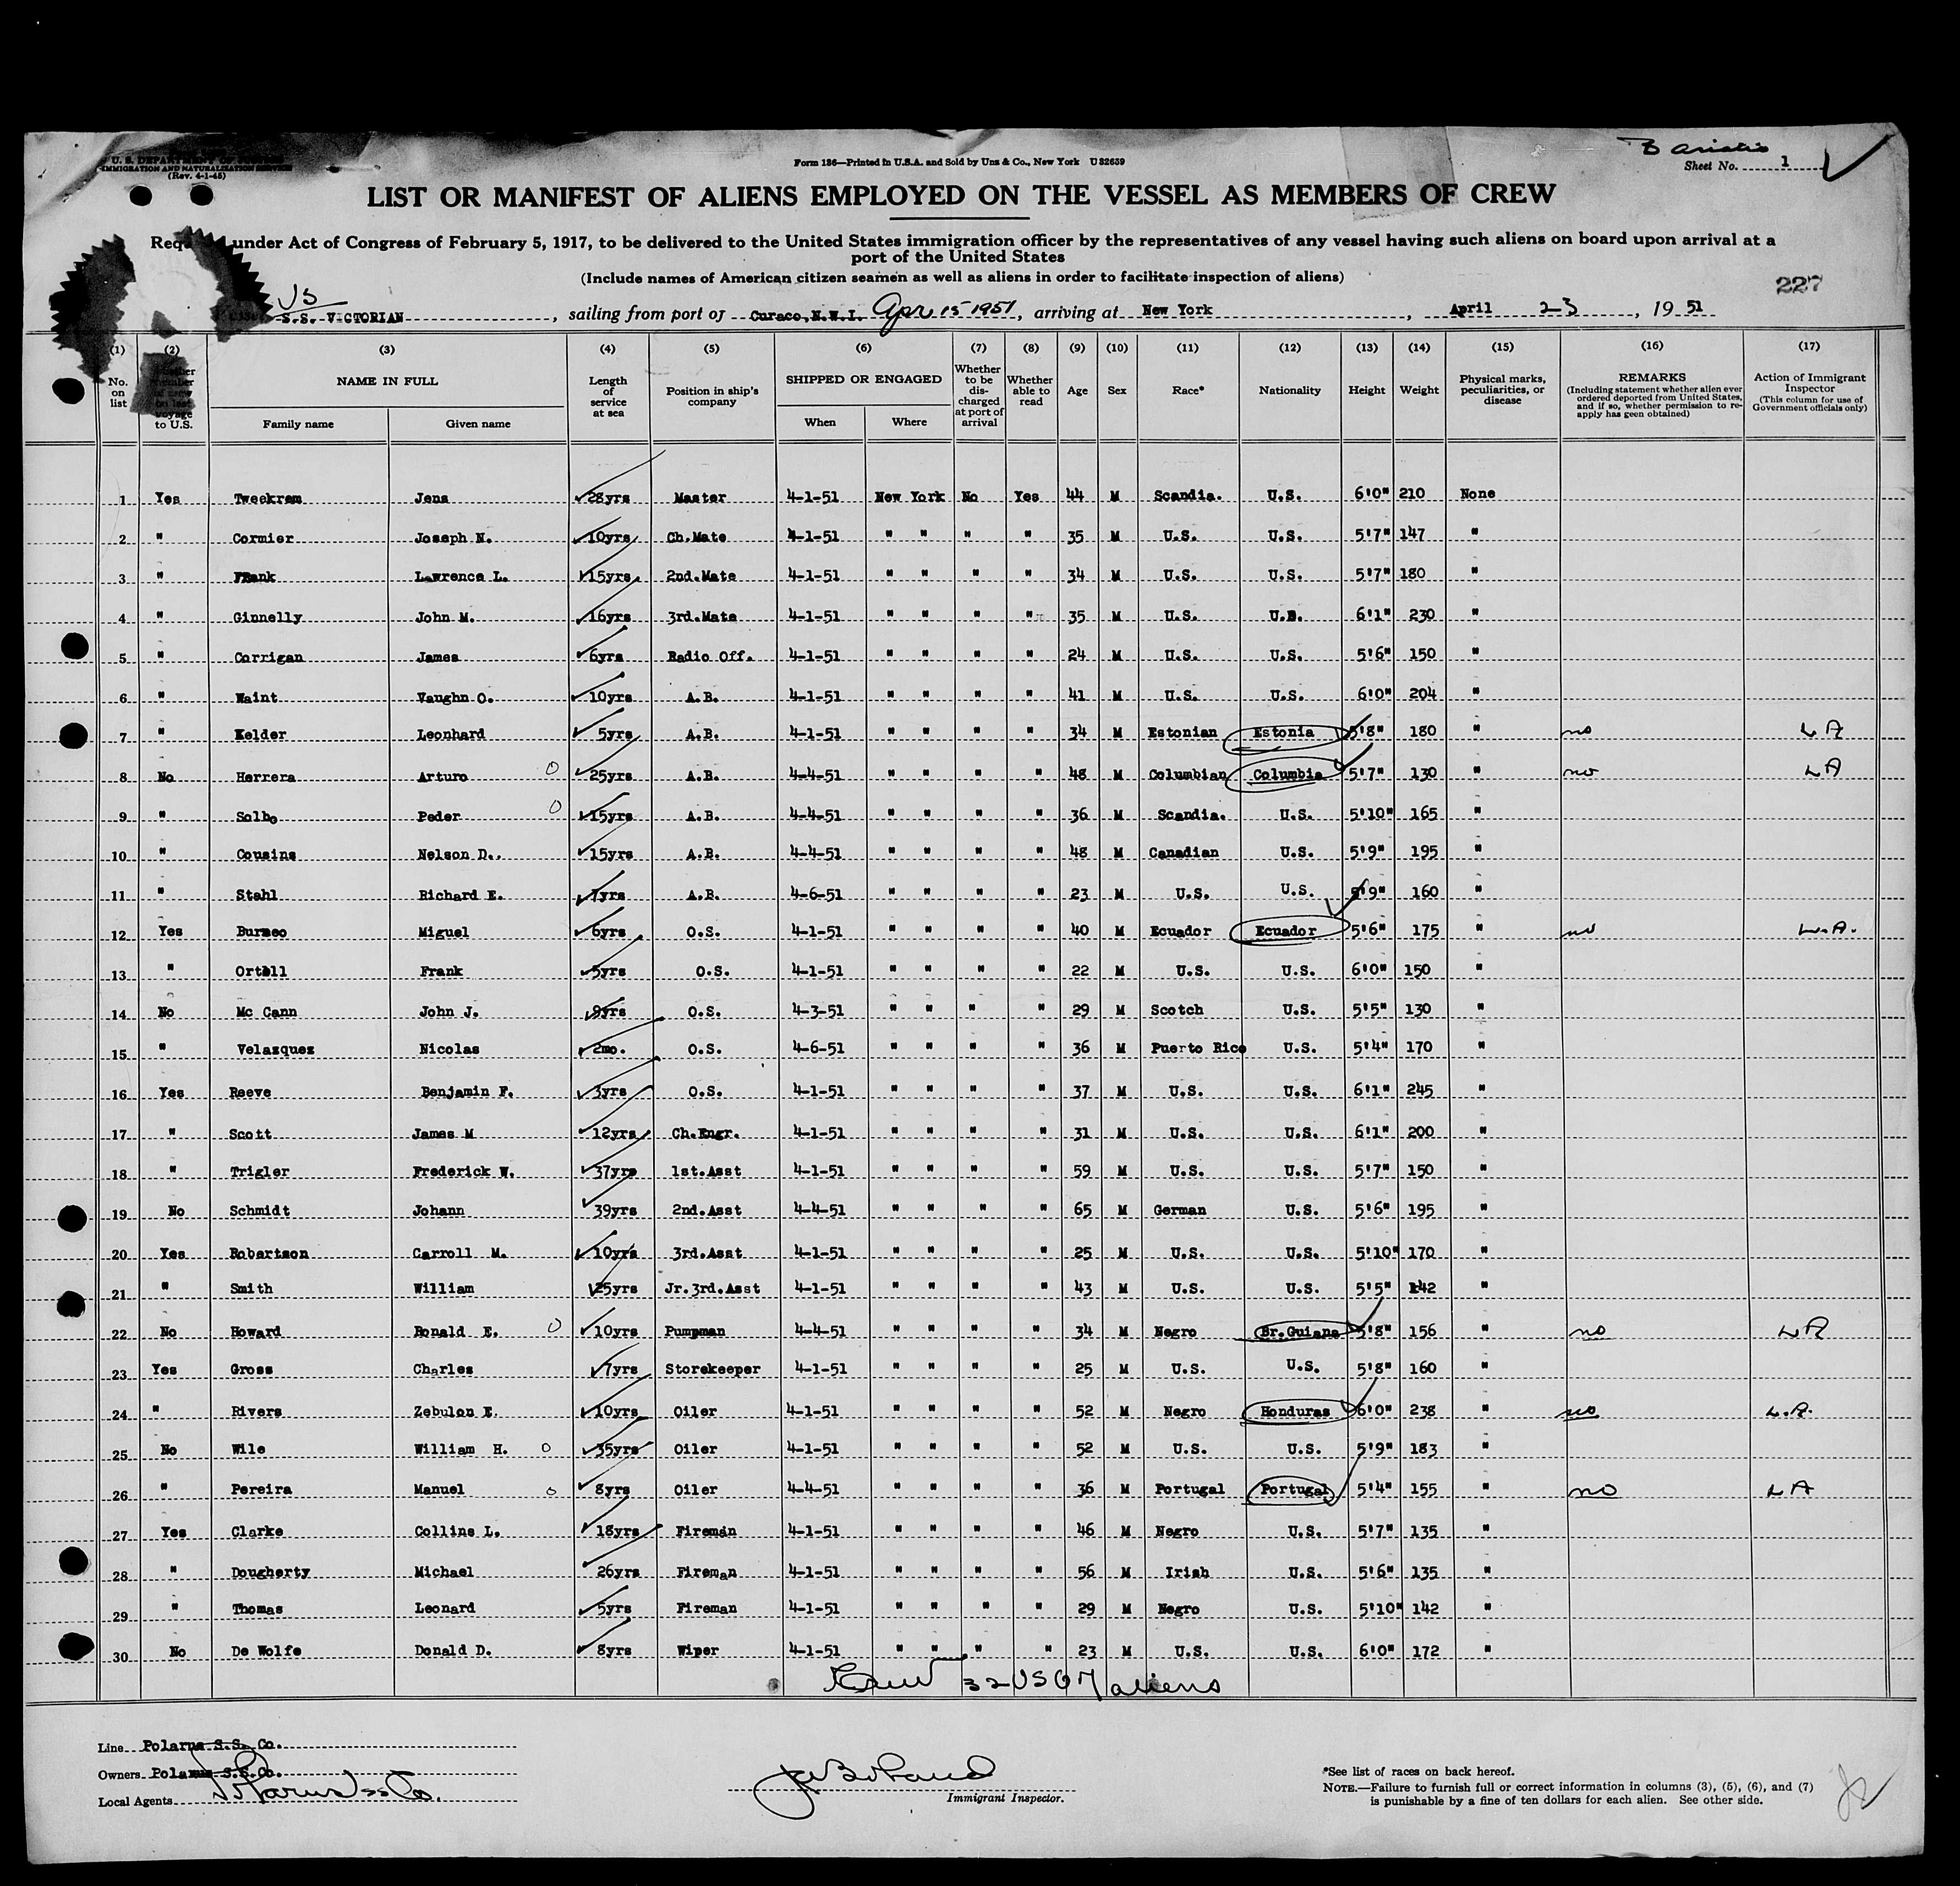 U. S. DEPARTMENT OF JUSTICE
IMMIGRATION AND NATURALIZATION SERVICE
(Rev. 4-1-45)
Form 136—Printed in U.S.A. and Sold by Unz & Co., New York U 32659
Sheet No. 1
LIST OR MANIFEST OF ALIENS EMPLOYED ON THE VESSEL AS MEMBERS OF CREW
under Act of Congress of February 5, 1917, to be delivered to the United States immigration officer by the representatives of any vessel having such aliens on board upon arrival at a
port of the United States
(Include names of American citizen seamen as well as aliens in order to facilitate inspection of aliens)
227
S.S. VICTORIAN, sailing from port of Curaco,N.W.I. Apr 15 1951, arriving at New York, April 23, 19 51
(1) (2) (3) (4) (5) (6) (7) (8) (9) (10) (11) (12) (13) (14) (15) (16) (17)
No. on list Whether member of crew on last voyage to U.S. NAME IN FULL Family name Given name Length of service at sea Position in ship's company SHIPPED OR ENGAGED When Where Whether to be discharged at port of arrival Whether able to read Age Sex Race* Nationality Height Weight Physical marks, peculiarities, or disease REMARKS (Including statement whether alien ever ordered deported from United States, and if so, whether permission to re-apply has geen obtained) Action of Immigrant Inspector (This column for use of Government officials only)
1 Yes Tweekrem Jens 28yrs Master 4-1-51 New York No Yes 44 M Scandia. U.S. 6'0" 210 None
2 " Cormier Joseph N. 10yrs Ch.Mate 4-1-51 " " " " 35 M U.S. U.S. 5'7" 147 "
3 " Frank Lawrence L. 15yrs. 2nd.Mate 4-1-51 " " " " 34 M U.S. U.S. 5'7" 180 "
4 " Ginnelly John M. 16yrs 3rd.Mate 4-1-51 " " " " 35 M U.S. U.S. 6'1" 230 "
5 " Corrigan James 6yrs Radio Off. 4-1-51 " " " " 24 M U.S. U.S. 5'6" 150 "
6 " Waint Vaughn O. 10yrs A.B. 4-1-51 " " " " 41 M U.S. U.S. 6'0" 204 "
7 " Kelder Leonhard 5yrs A.B. 4-1-51 " " " " 34 M Estonian Estonia 5'8" 180 " no LA
8 No Herrera Arturo 25yrs A.B. 4-4-51 " " " " 48 M Columbian Columbia 5'7" 130 " no LA
9 " Solbo Peder 15yrs A.B. 4-4-51 " " " " 36 M Scandia. U.S. 5'10" 165 "
10 " Cousins Nelson D.. 15yrs A.B. 4-4-51 " " " " 48 M Canadian U.S. 5'9" 195 "
11 " Stahl Richard E. 7yrs A.B. 4-6-51 " " " " 23 M U.S. U.S. 5'9" 160 "
12 Yes Burneo Miguel 6yrs O.S. 4-1-51 " " " " 40 M Ecuador Ecuador 5'6" 175 " no L.A.
13 " Ortell Frank 5yrs O.S. 4-1-51 " " " " 22 M U.S. U.S. 6'0" 150 "
14 No Mc Cann John J. 9yrs O.S. 4-3-51 " " " " 29 M Scotch U.S. 5'5" 130 "
15 " Velazquez Nicolas 2mo. O.S. 4-6-51 " " " " 36 M Puerto Rico U.S. 5'4" 170 "
16 Yes Reeve Benjamin F. 3yrs O.S. 4-1-51 " " " " 37 M U.S. U.S. 6'1" 245 "
17 " Scott James M 12yrs. Ch.Engr. 4-1-51 " " " " 31 M U.S. U.S. 6'1" 200 "
18 " Trigler Frederick W. 37yrs 1st.Asst 4-1-51 " " " " 59 M U.S. U.S. 5'7" 150 "
19 No Schmidt Johann 39yrs 2nd.Asst 4-4-51 " " " " 65 M German U.S. 5'6" 195 "
20 Yes Robartson Carroll M. 10yrs 3rd.Asst 4-1-51 " " " " 25 M U.S. U.S. 5'10" 170 "
21 " Smith William 25yrs Jr.3rd.Asst 4-1-51 " " " " 43 M U.S. U.S. 5'5" 142 "
22 No Howard Ronald E. 10yrs Pumpman 4-4-51 " " " " 34 M Negro Br.Guiana 5'8" 156 " no LA
23 Yes Gross Charles 7yrs Storekeeper 4-1-51 " " " " 25 M U.S. U.S. 5'8" 160 "
24 " Rivers Zebulon E. 10yrs Oiler 4-1-51 " " " " 52 M Negro Honduras 6'0" 238 " no L.A.
25 No Wile William H. 35yrs Oiler 4-1-51 " " " " 52 M U.S. U.S. 5'9" 183 "
26 " Pereira Manuel 8yrs Oiler 4-4-51 " " " " 36 M Portugal Portugal 5'4" 155 " no LA
27 Yes Clarke Collins L. 18yrs Fireman 4-1-51 " " " " 46 M Negro U.S. 5'7" 135 "
28 " Dougherty Michael 26yrs Fireman 4-1-51 " " " " 56 M Irish U.S. 5'6" 135 "
29 " Thomas Leonard 5yrs Fireman 4-1-51 " " " " 29 M Negro U.S. 5'10" 142 "
30 No De Wolfe Donald D. 8yrs Wiper 4-1-51 " " " " 23 M U.S. U.S. 6'0" 172 "
Crew 32 USC 7 aliens
Line Polarus S.S. Co.
Owners Polarus S.S.Co.
Local Agents Polarus SS Co.
Immigrant Inspector.
*See list of races on back hereof.
NOTE.—Failure to furnish full or correct information in columns (3), (5), (6), and (7)
is punishable by a fine of ten dollars for each alien. See other side.